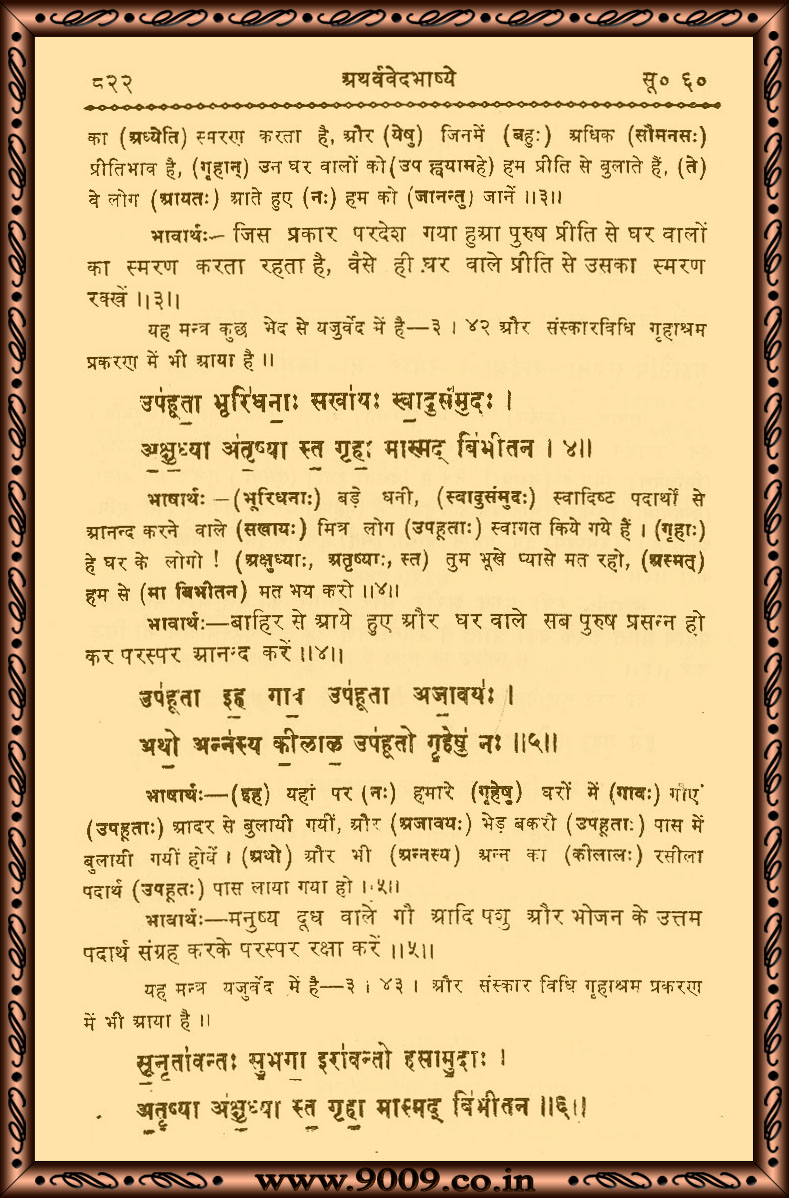 ८२२ अथर्ववेदभाष्ये सू० ६०
का (अध्येति) स्मरण करता है, और (येषु) जिनमें (बहुः) अधिक (सौमनसः)
प्रीतिभाव है, (गृहान्) उन घर वालों को (उप ह्वयामहे) हम प्रीति से बुलाते हैं, (ते)
वे लोग (आयतः) आते हुए (नः) हम को (जानन्तु) जानें ॥३॥
भावार्थः—जिस प्रकार परदेश गया हुआ पुरुष प्रीति से घर वालों
का स्मरण करता रहता है, वैसे ही घर वाले प्रीति से उसका स्मरण
रक्खें ॥३॥
यह मन्त्र कुछ भेद से यजुर्वेद में है—३ । ४२ और संस्कारविधि गृहाश्रम
प्रकरण में भी आया है ॥
उप॑हूता॒ भूरि॑धना॒ः सखा॑यः स्वा॒दुसं॑मुदः ।
अ॒क्षु॒ध्या अ॑तृ॒ष्या स्त॒ गृहा॒ मास्मद् बि॑भीतन । ४॥
भाषार्थः—(भूरिधनाः) बड़े धनी, (स्वादुसंमुदः) स्वादिष्ट पदार्थों से
आनन्द करने वाले (सखायः) मित्र लोग (उपहूताः) स्वागत किये गये हैं । (गृहाः)
हे घर के लोगो ! (अक्षुध्याः, अतृष्याः, स्त) तुम भूखे प्यासे मत रहो, (अस्मत्)
हम से (मा बिभीतन) मत भय करो ॥४॥
भावार्थः—बाहिर से आये हुए और घर वाले सब पुरुष प्रसन्न हो
कर परस्पर आनन्द करें ॥४॥
उप॑हूता इ॒ह गाव॒ उप॑हूता अजा॒वयः॑ ।
अथो॒ अन्न॑स्य की॒लाल॒ उप॑हूतो गृ॒हेषु॑ नः ॥५॥
भाषार्थः—(इह) यहां पर (नः) हमारे (गृहेषु) घरों में (गावः) गौएं
(उपहूताः) आदर से बुलायी गयीं, और (अजावयः) भेड़ बकरी (उपहूताः) पास में
बुलायी गयीं होवें । (अथो) और भी (अन्नस्य) अन्न का (कीलालः) रसीला
पदार्थ (उपहूतः) पास लाया गया हो ।५॥
भावार्थः—मनुष्य दूध वाले गौ आदि पशु और भोजन के उत्तम
पदार्थ संग्रह करके परस्पर रक्षा करें ॥५॥
यह मन्त्र यजुर्वेद में है—३ । ४३ । और संस्कार विधि गृहाश्रम प्रकरण
में भी आया है ॥
सू॒नृता॑वन्तः सु॒भगा॒ इरा॑वन्तो हसामु॒दाः॑ ।
अ॒तृ॒ष्या अ॑क्षु॒ध्या स्त॒ गृहा॒ मास्मद् बि॑भीतन ॥६॥
www.9009.co.in